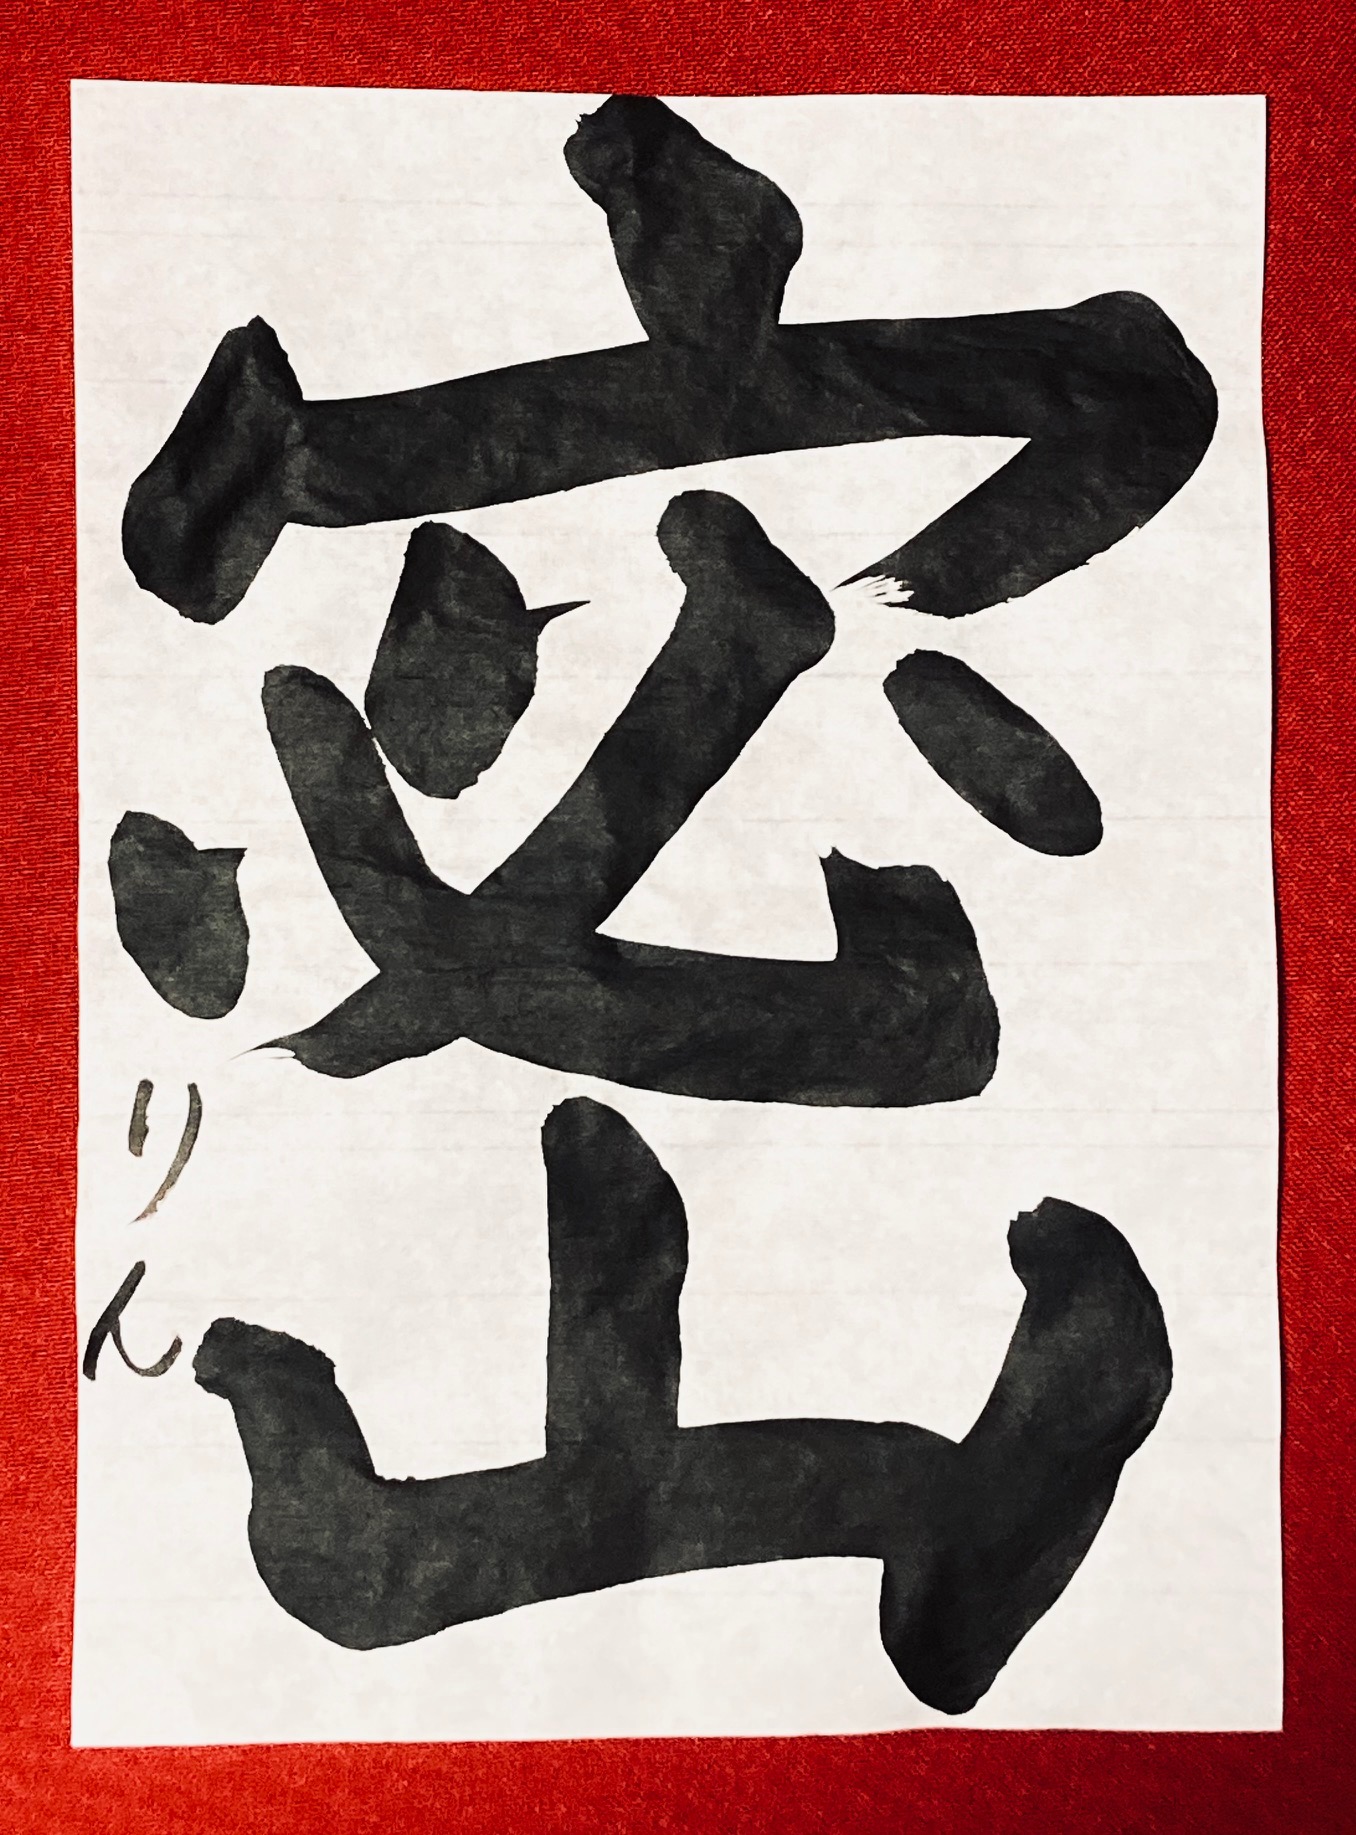 密
りん